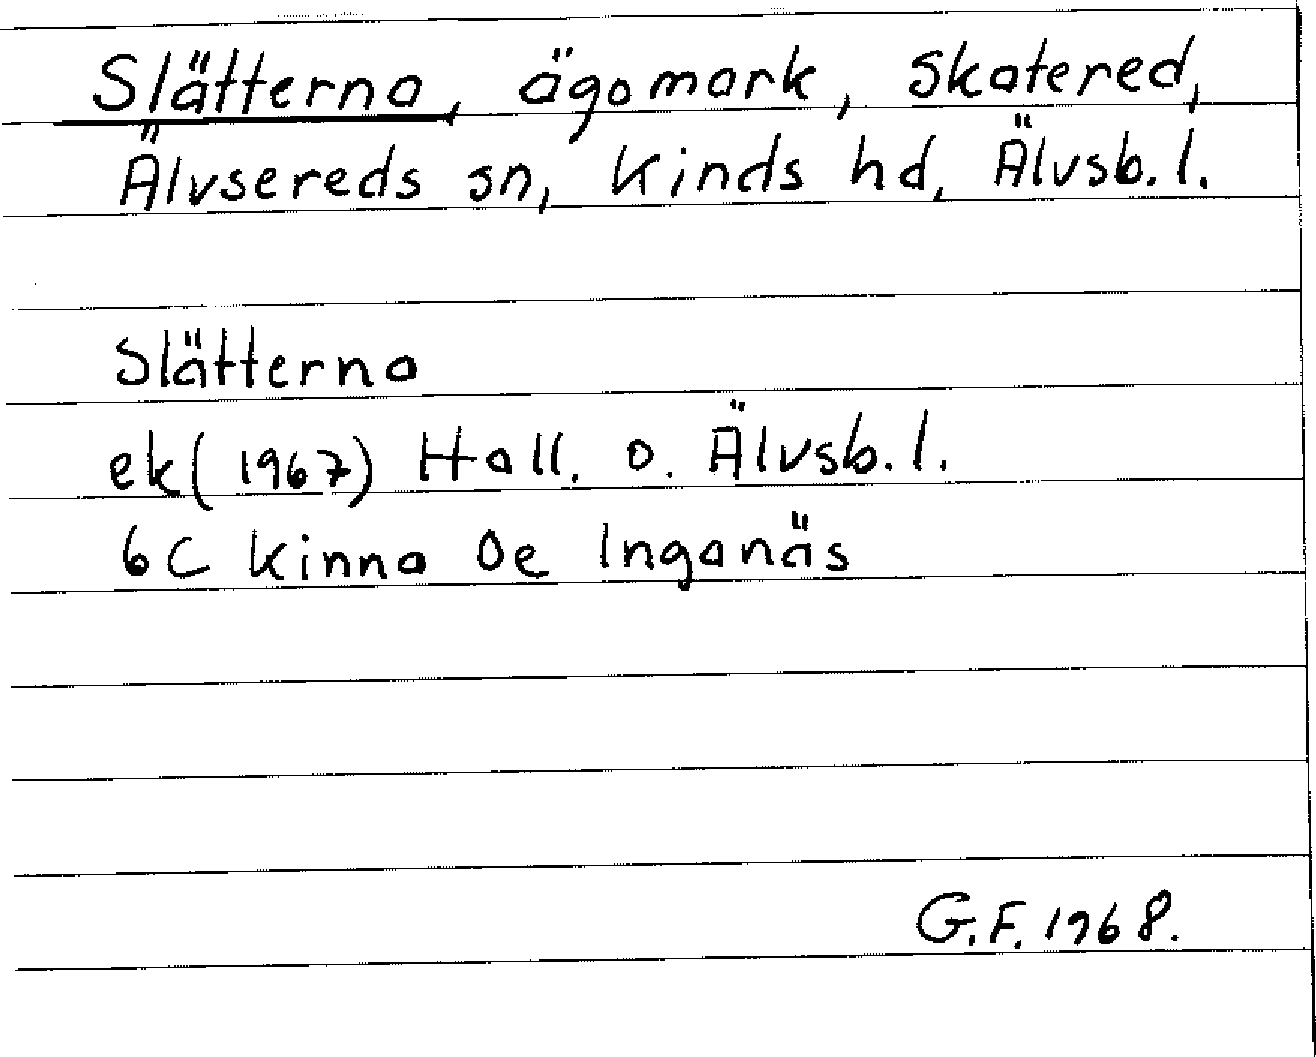 Slätterna, ägomark, Skatered,
Älvsereds sn, Kinds hd, Älvsb. l.
Slätterna
ek (1967) Hall. o. Älvsb. l.
6C Kinna 0e Inganäs
G.F. 1968.